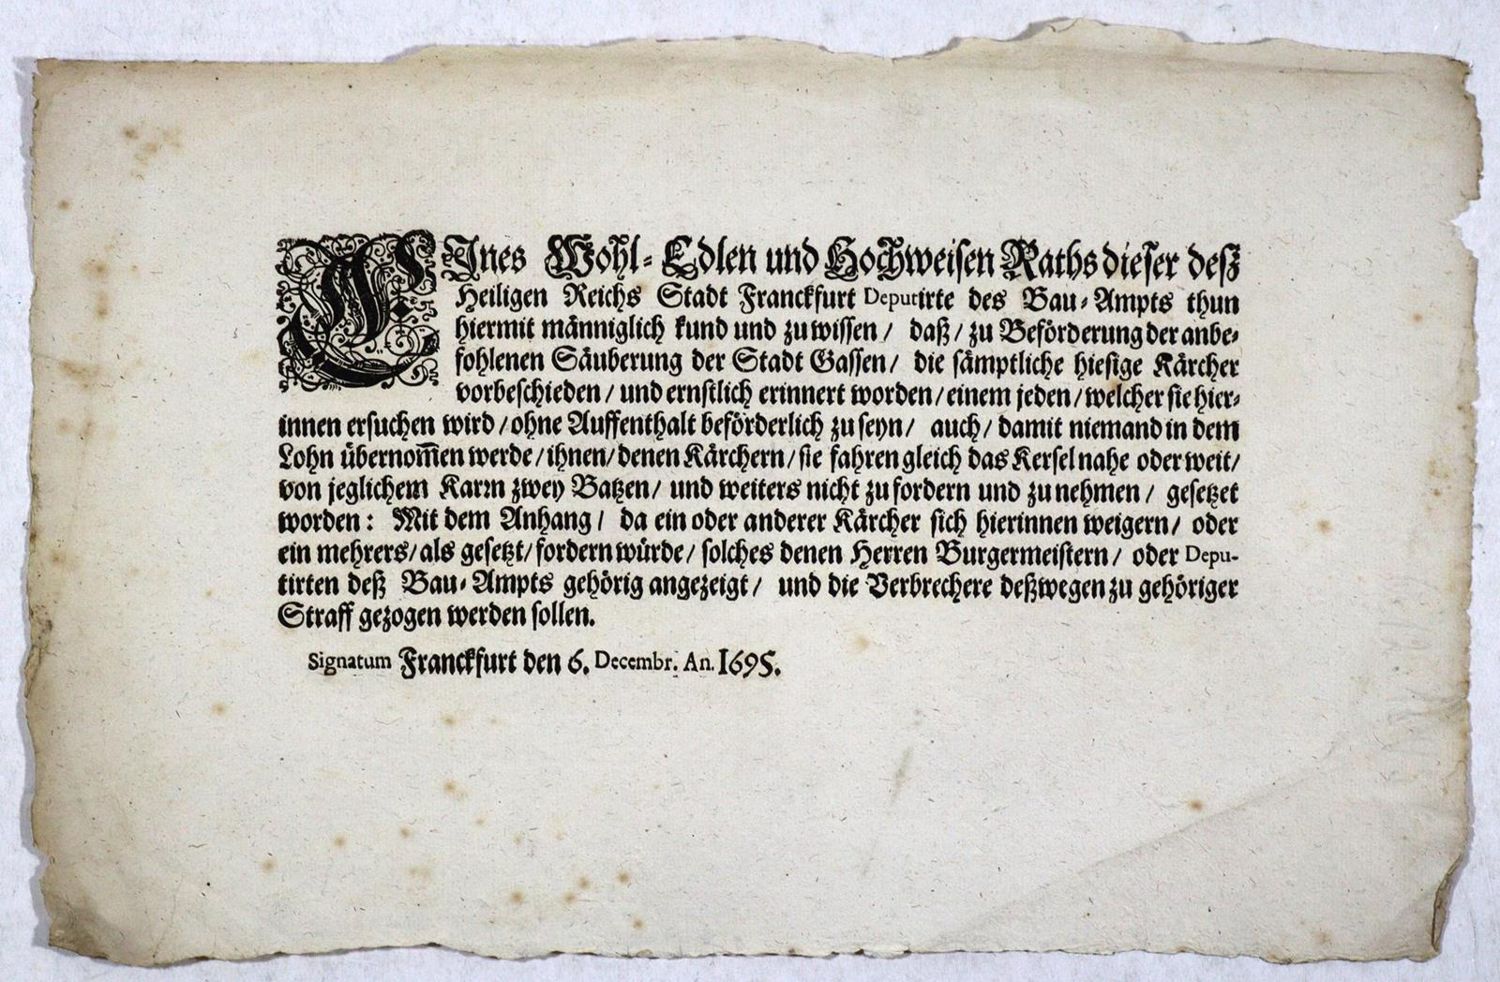 EJnes Wohl-Edlen und Hochweisen Raths dieser deß
Heiligen Reichs Stadt Franckfurt Deputirte des Bau-Ampts thun
hiermit männiglich kund und zu wissen / daß / zu Beförderung der anbe-
fohlenen Säuberung der Stadt Gassen / die sämptliche hiesige Kärcher
vorbeschieden / und ernstlich erinnert worden / einem jeden / welcher sie hier-
innen ersuchen wird / ohne Auffenthalt beförderlich zu seyn / auch / damit niemand in dem
Lohn übernom̅en werde / ihnen / denen Kärchern / sie fahren gleich das Kersel nahe oder weit /
von jeglichem Karrn zwey Batzen / und weiters nicht zu fordern und zu nehmen / gesetzet
worden: Mit dem Anhang / da ein oder anderer Kärcher sich hierinnen weigern / oder
ein mehrers / als gesetzt / fordern würde / solches denen Herren Burgermeistern / oder Depu-
tirten deß Bau-Ampts gehörig angezeigt / und die Verbrechere deßwegen zu gehöriger
Straff gezogen werden sollen.
Signatum Franckfurt den 6. Decembr. An. 1695.